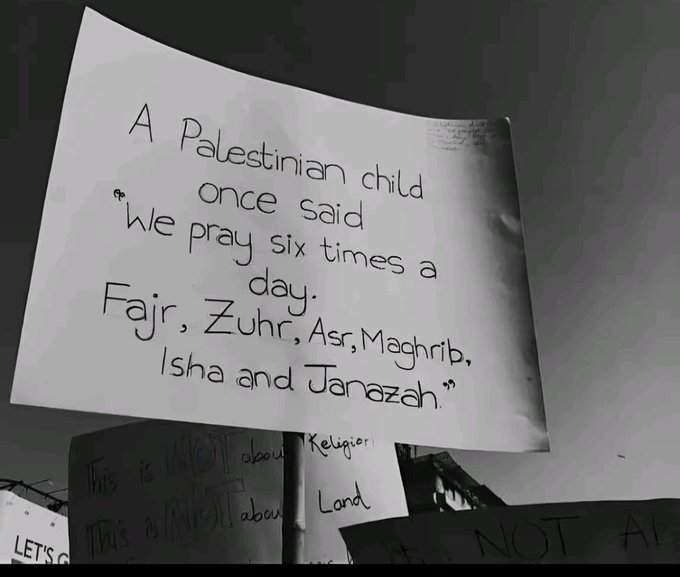 A Palestinian child
once said
"We pray six times a
day.
Fajr, Zuhr, Asr, Maghrib,
Isha and Janazah."
This is NOT about Religion
This is NOT about Land
LET'S G
NOT AL